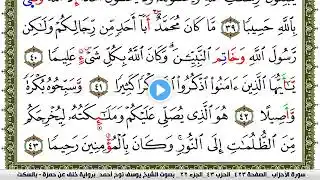 بِاللَّهِ حَسِيبًا ٣٩ مَّا كَانَ مُحَمَّدٌ أَبَآ أَحَدٍ مِّن رِّجَالِكُمْ وَلَٰكِن
رَّسُولَ ٱللَّهِ وَخَاتِمَ ٱلنَّبِيِّـۧنَ وَكَانَ ٱللَّهُ بِكُلِّ شَىْءٍ عَلِيمًا ٤٠
يَٰٓأَيُّهَا ٱلَّذِينَ ءَامَنُوا ٱذْكُرُوا ٱللَّهَ ذِكْرًا كَثِيرًا ٤١ وَسَبِّحُوهُ بُكْرَةً
وَأَصِيلًا ٤٢ هُوَ ٱلَّذِى يُصَلِّى عَلَيْكُمْ وَمَلَٰٓئِكَتُهُۥ لِيُخْرِجَكُم
مِّنَ ٱلظُّلُمَٰتِ إِلَى ٱلنُّورِ وَكَانَ بِٱلْمُؤْمِنِينَ رَحِيمًا ٤٣
سورة الأحزاب . الصفحة ٤٢٣ الحزب ٤٣ . الجزء ٢٢ . بصوت الشيخ يوسف نوح أحمد: برواية خلف عن حمزة - بالسكت